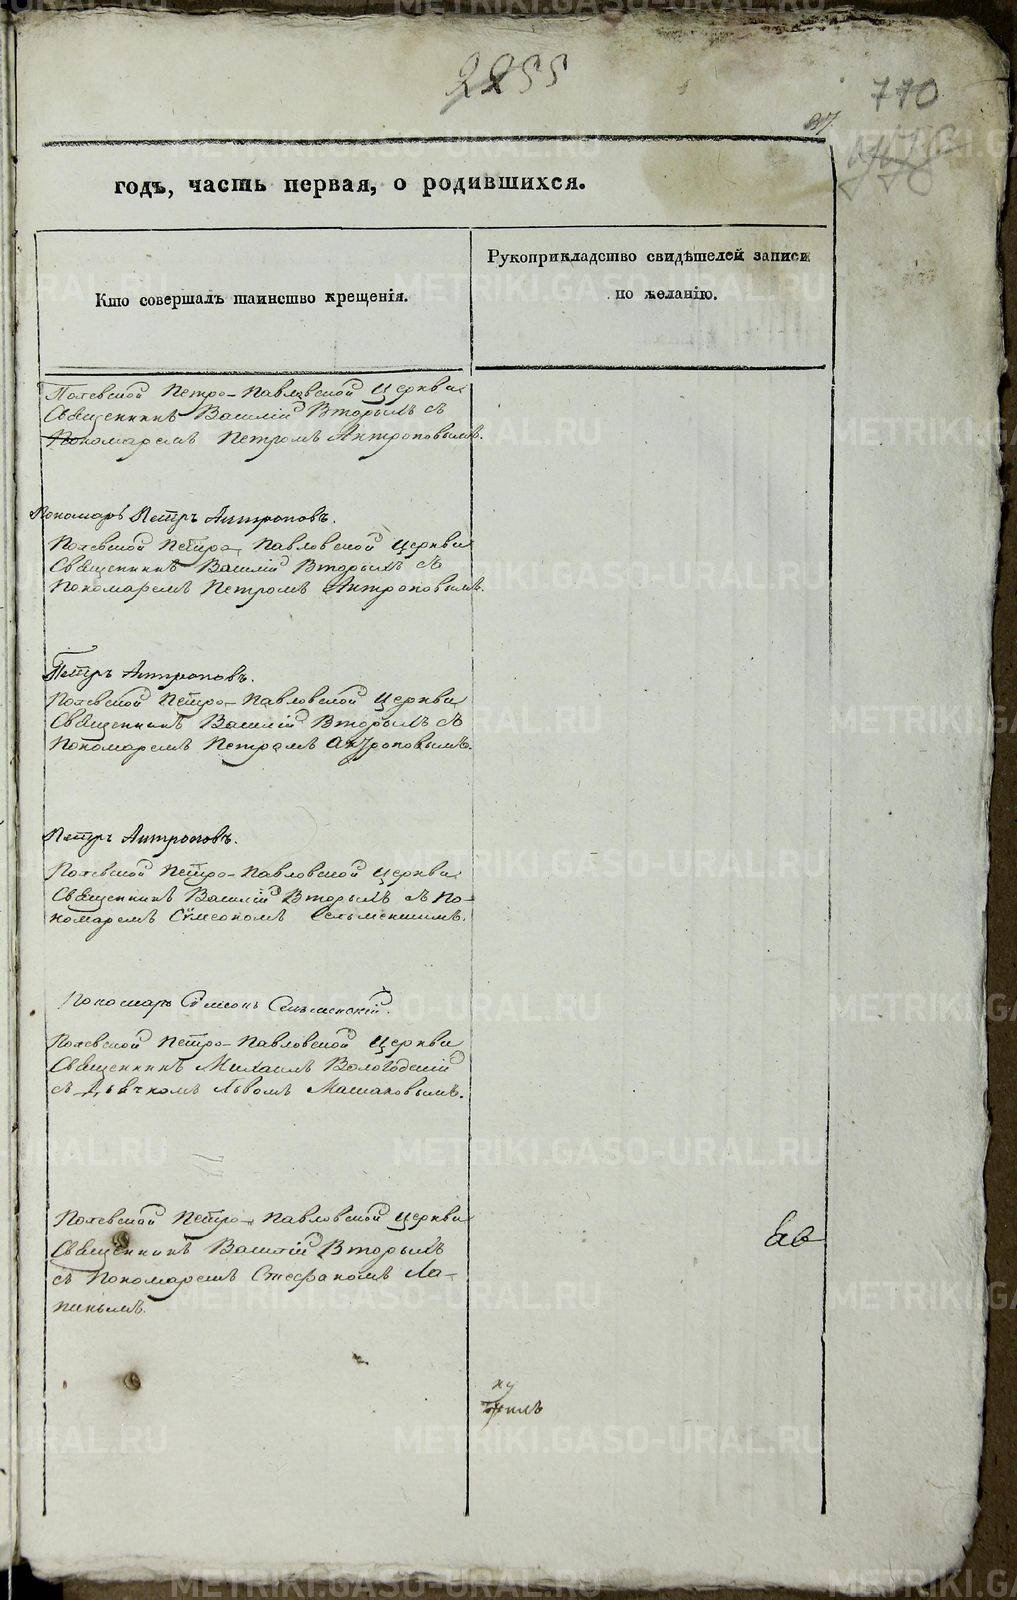 2255
770
37
годъ, часть первая, о родившихся.
Кто совершалъ таинство крещенія.
Рукоприкладство свидѣтелей записи
по желанію.
Полевской Петро-Павловской Церкви
Священникъ Василій Вторыхъ съ
Пономаремъ Петромъ Антроповымъ.
Пономарь Петръ Антроповъ.
Полевской Петро-Павловской Церкви
Священникъ Василій Вторыхъ съ
Пономаремъ Петромъ Антроповымъ.
Петръ Антроповъ.
Полевской Петро-Павловской Церкви
Священникъ Василій Вторыхъ съ
Пономаремъ Петромъ Антроповымъ.
Петръ Антроповъ.
Полевской Петро-Павловской Церкви
Священникъ Василій Вторыхъ съ По-
номаремъ Сѵмеономъ
Пономарь Сѵмеонъ
Полевской Петро-Павловской Церкви
Священникъ Михаилъ Вологодскій
съ Дьячкомъ Львомъ
Полевской Петро-Павловской Церкви
Священникъ Василій Вторыхъ
съ Пономаремъ Стефаномъ Ла-
пинымъ.
METRIKI.GASO-URAL.RU